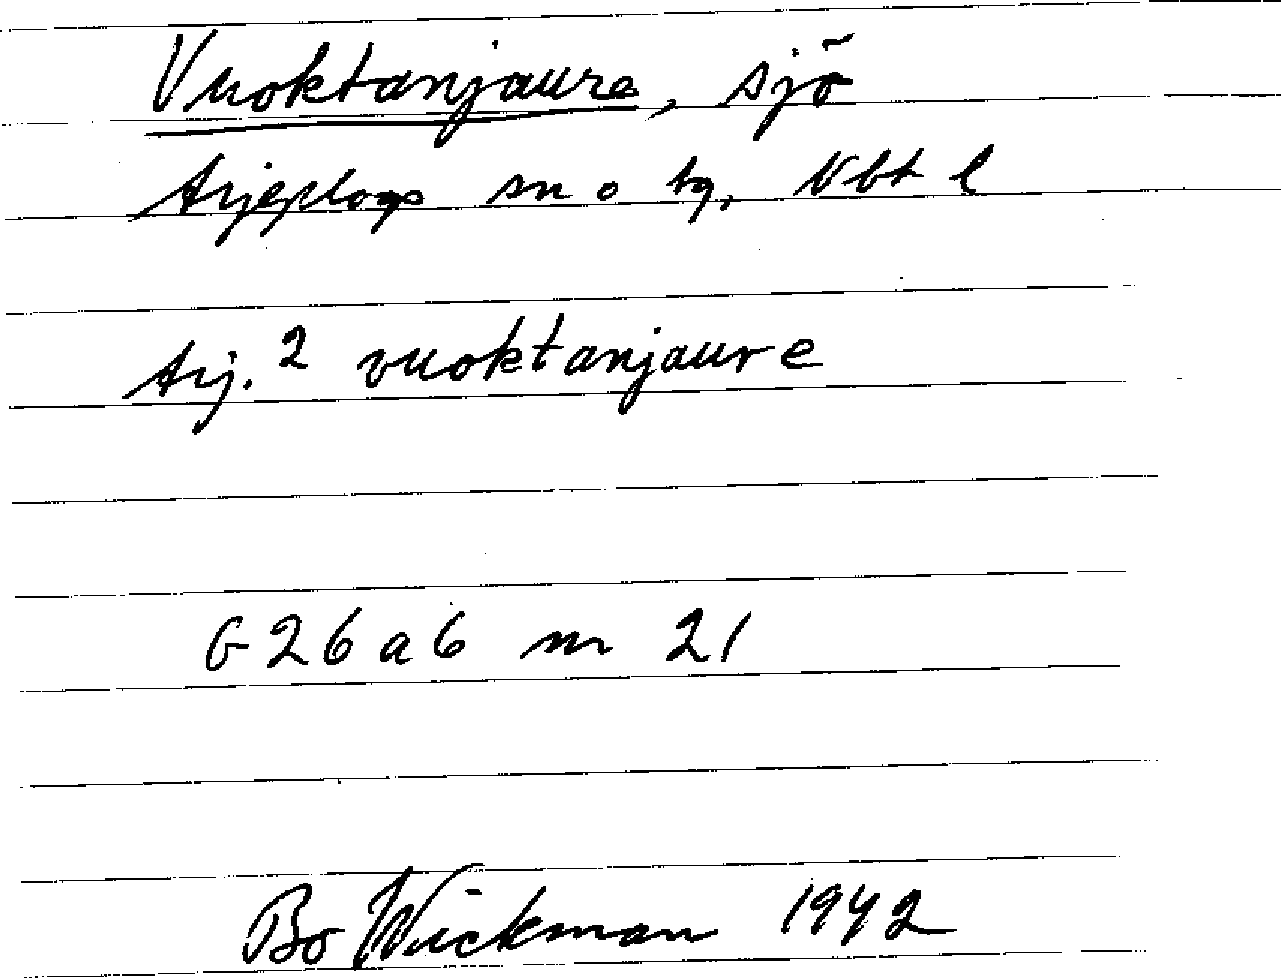 Vuoktanjaure, sjö
Arjeplogs sn o tg, Nbt l
Arj. 2 vuoktanjaure
G26a6 nr 21
Bo Wickman 1942